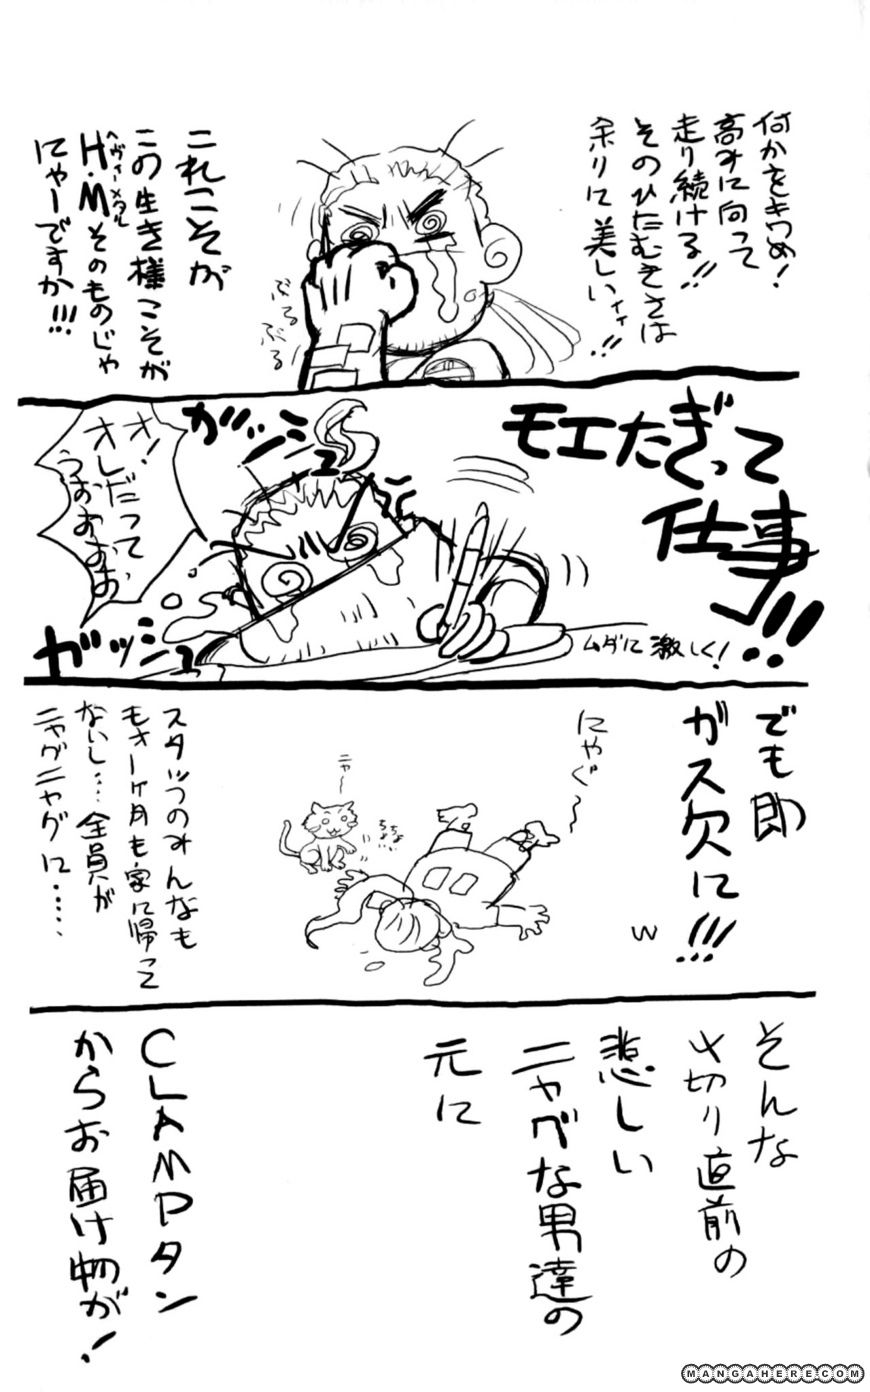 何かをきつめ!
高みに向って
走り続ける!!
そのひたむきさは
余りに美しい!!
ぶるぶる
これこそが
この生き様こそが
H・Mそのものじゃ
ヘヴィーメタル
にゃーですか!!!
モエたぎって
仕事!!!
ムダに激しく!
ガッシ
ガッシュ
オ!
オレだって
うおおおお
でも即
ガス欠に!!!
w
にゃぐ〜
ニャ〜
ちょいちょい
スタッフのみんなも
もォ一ヶ月も家に帰って
ないし……全員が
ニャグニャグに……
そんな
〆切り直前の
悲しい
ニャグな男達の
元に
CLAMPタン
からお届け物が!
MANGAHERE.COM